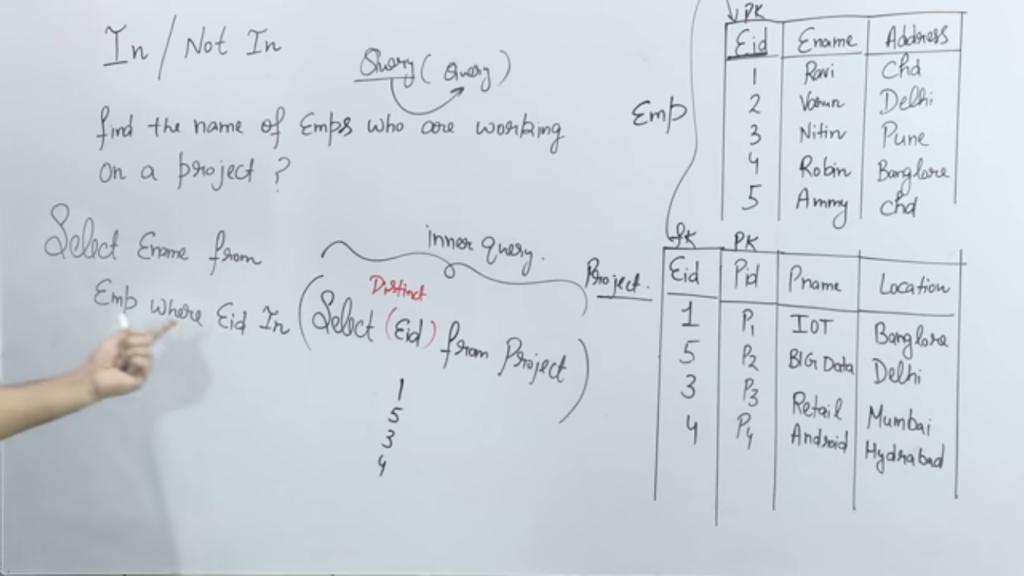 In / Not In
Query ( Query )
find the name of Emps who are working
on a project ?
Select Ename from
Emp where Eid In (Select Distinct (Eid) from Project)
inner query.
1
5
3
4
Emp
PK
Eid Ename Address
1 Ravi Chd
2 Varun Delhi
3 Nitin Pune
4 Robin Banglore
5 Ammy Chd
Project.
fk PK
Eid Pid Pname Location
1 P1 IOT Banglore
5 P2 BIG Data Delhi
3 P3 Retail Mumbai
4 P4 Android Hydrabad